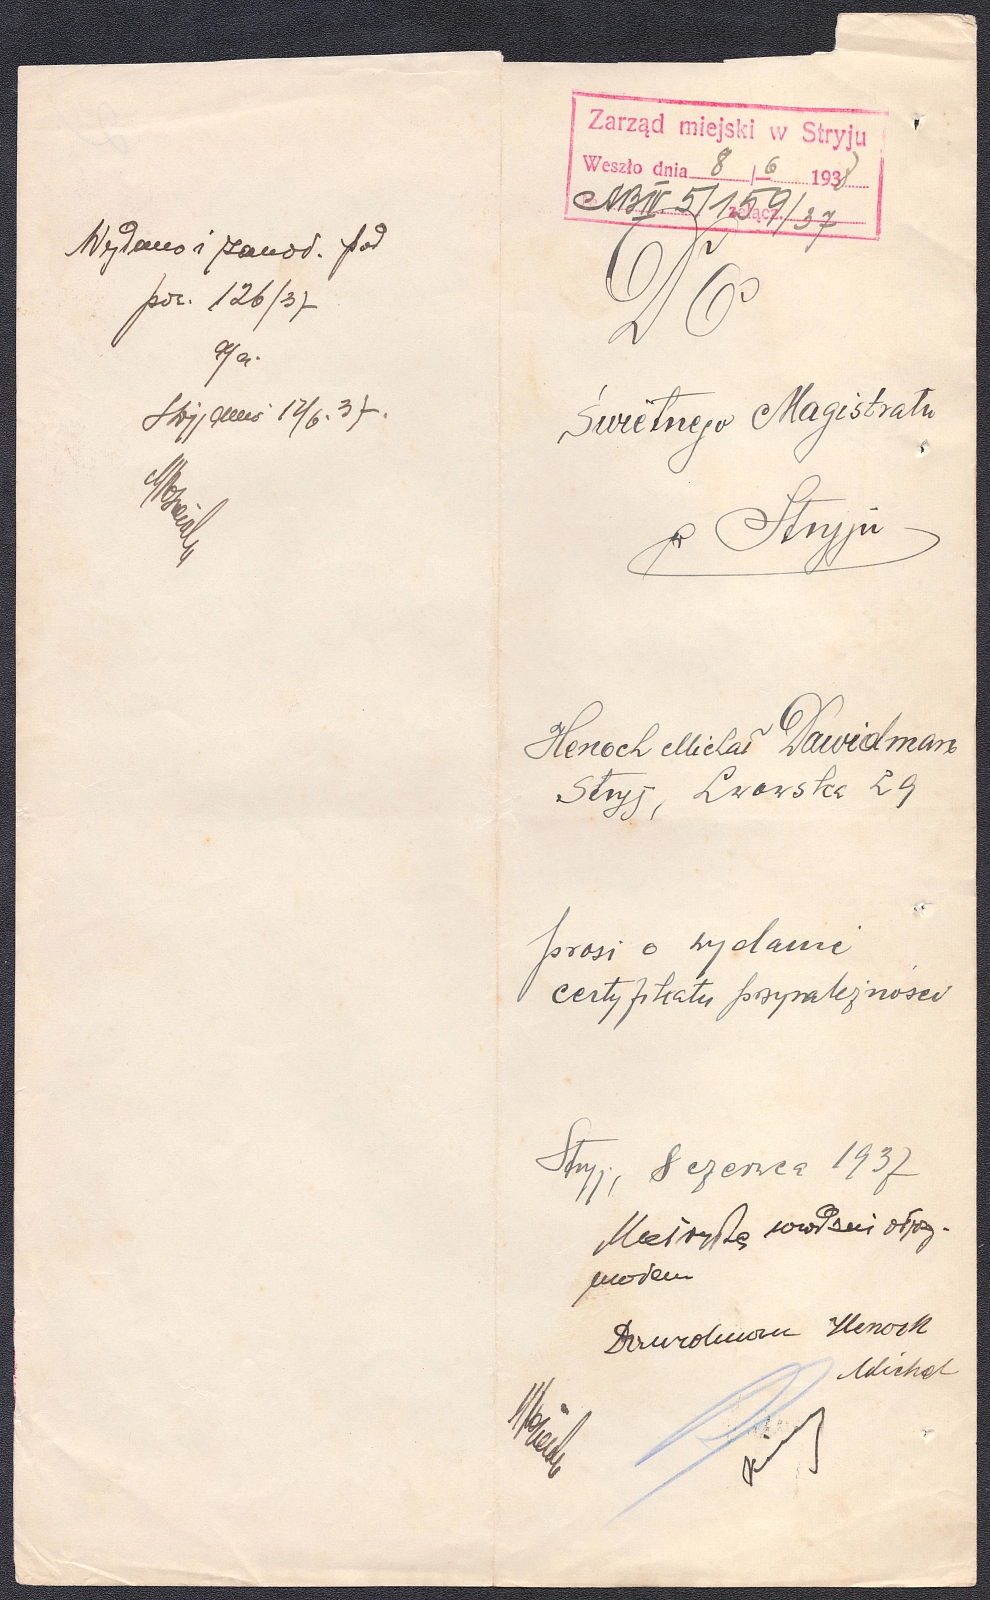 Wydano i zanot. pod
poz. 126/37
a/a.
Stryj, dnia 12/6. 37.
Zarząd miejski w Stryju
Weszło dnia 8/6 193
AB IV 5/159/37
załącz.
Do
Świetnego Magistratu
w Stryju
Henoch Michał Dawidman
Stryj, Lwowska 29
prosi o wydanie
certyfikatu przynależności
Stryj, 8 czerwca 1937
Metrykę urodzeni otrzy-
małem
Dawidman Henoch
Michał